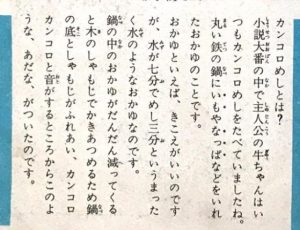 カンコロめしとは?
小説大番の中で主人公の牛ちゃんはい
つもカンコロめしをたべていましたね。
丸い鉄の鍋にいもやなっぱなどをいれ
たおかゆのことです。
おかゆといえば、きこえがいいのです
が、水が七分でめし三分というまった
く水のようなおかゆなのです。
鍋の中のおかゆがだんだん減ってくる
と木のしゃもじでかきあつめるため鍋
の底としゃもじがふれあい、カンコロ
カンコロと音がするところからこのよ
うな、あだな、がついたのです。